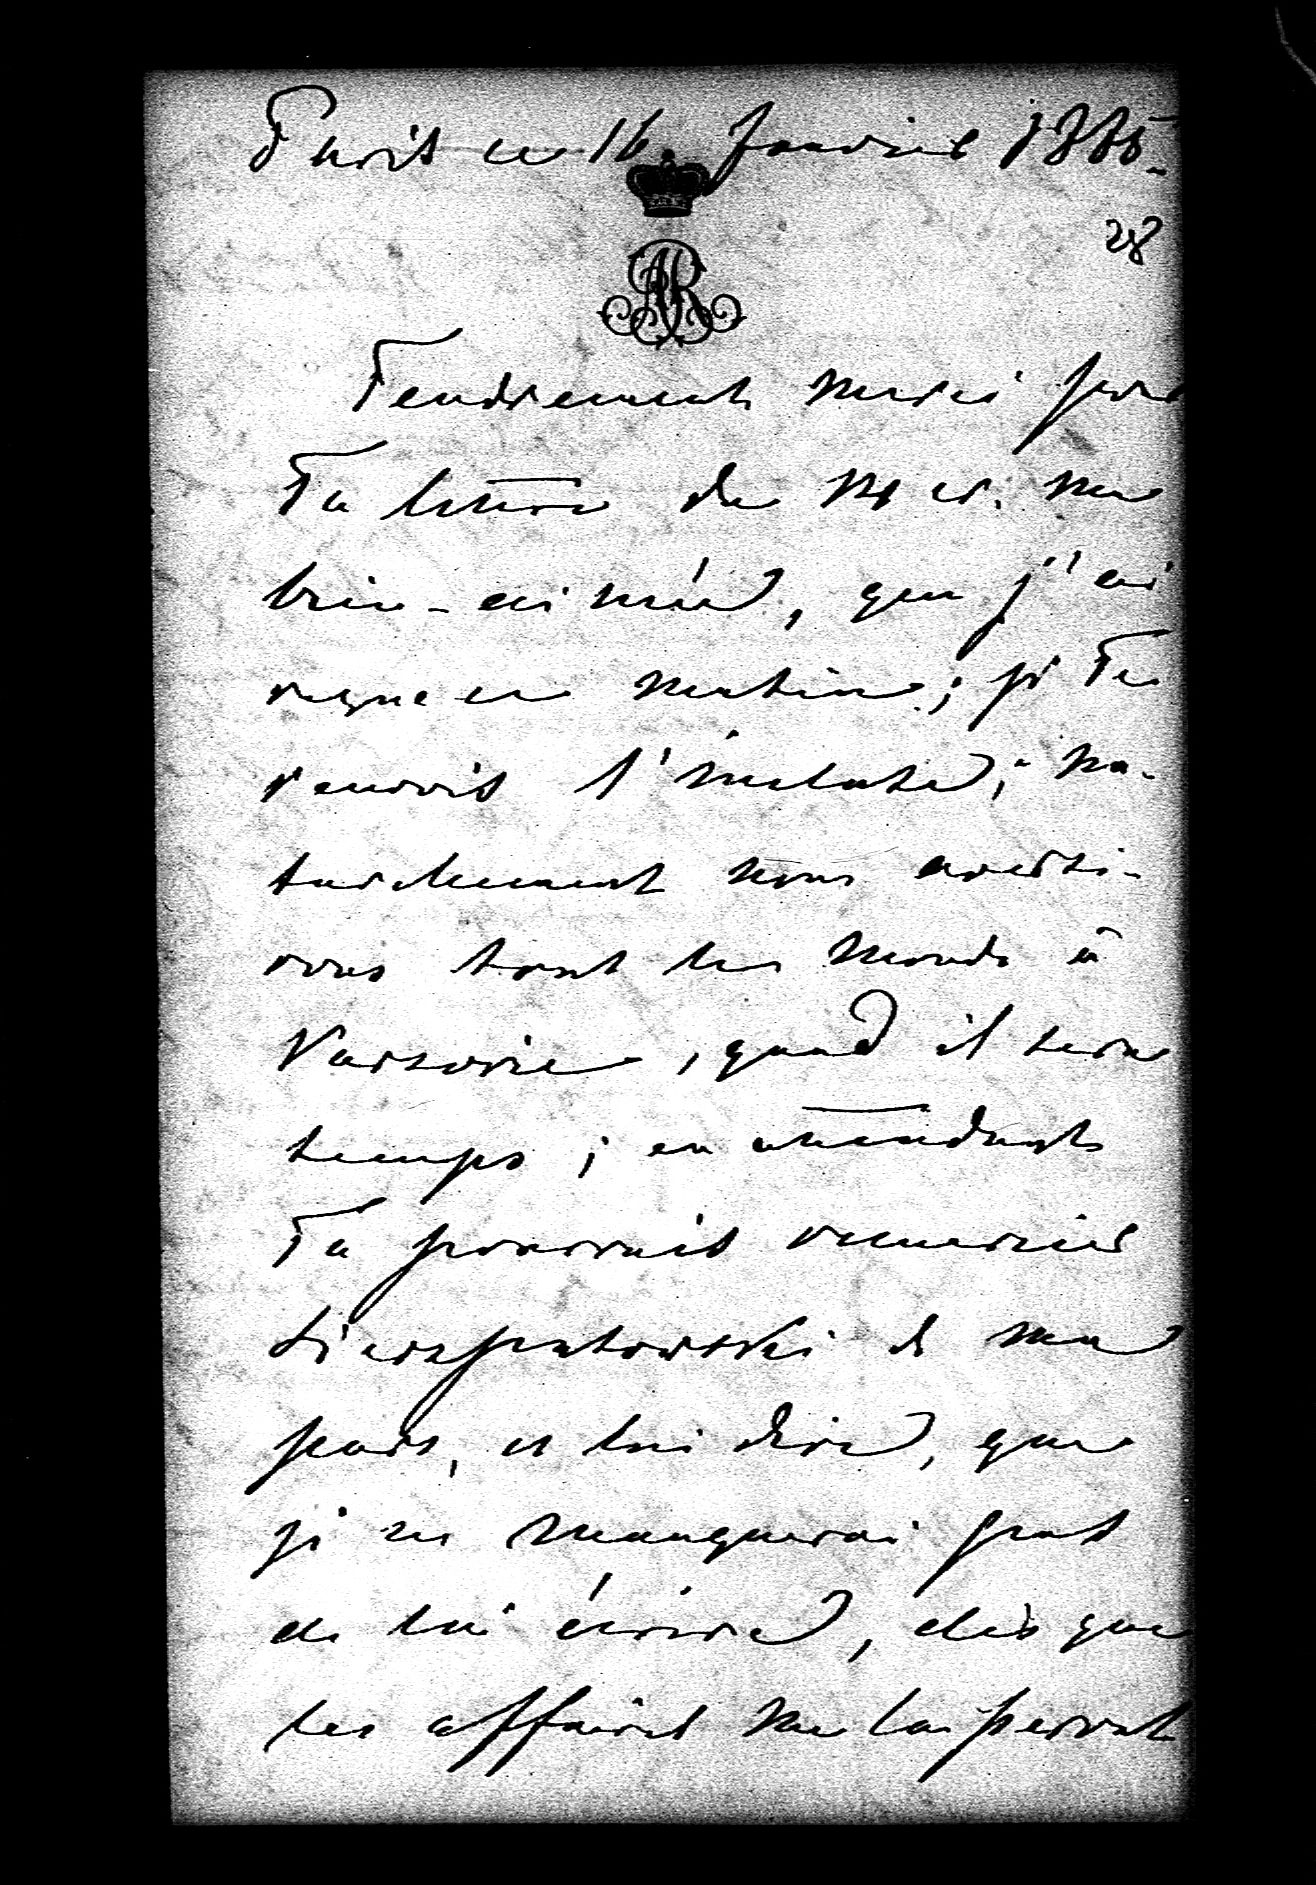 Paris ce 16 Janvier 1885.
28
AR
Tendrement merci pour
Ta lettre du 14 cr. ma
bien-aimée, que j'ai
reçue ce matin; je Te
renvois l'incluse; na-
turellement nous averti-
rons tout le monde à
Varsovie, quand il sera
temps; en attendant
Tu pourrais remercier
de ma
part, et lui dire, que
je ne manquerai pas
de lui écrire, dès que
les affaires me le